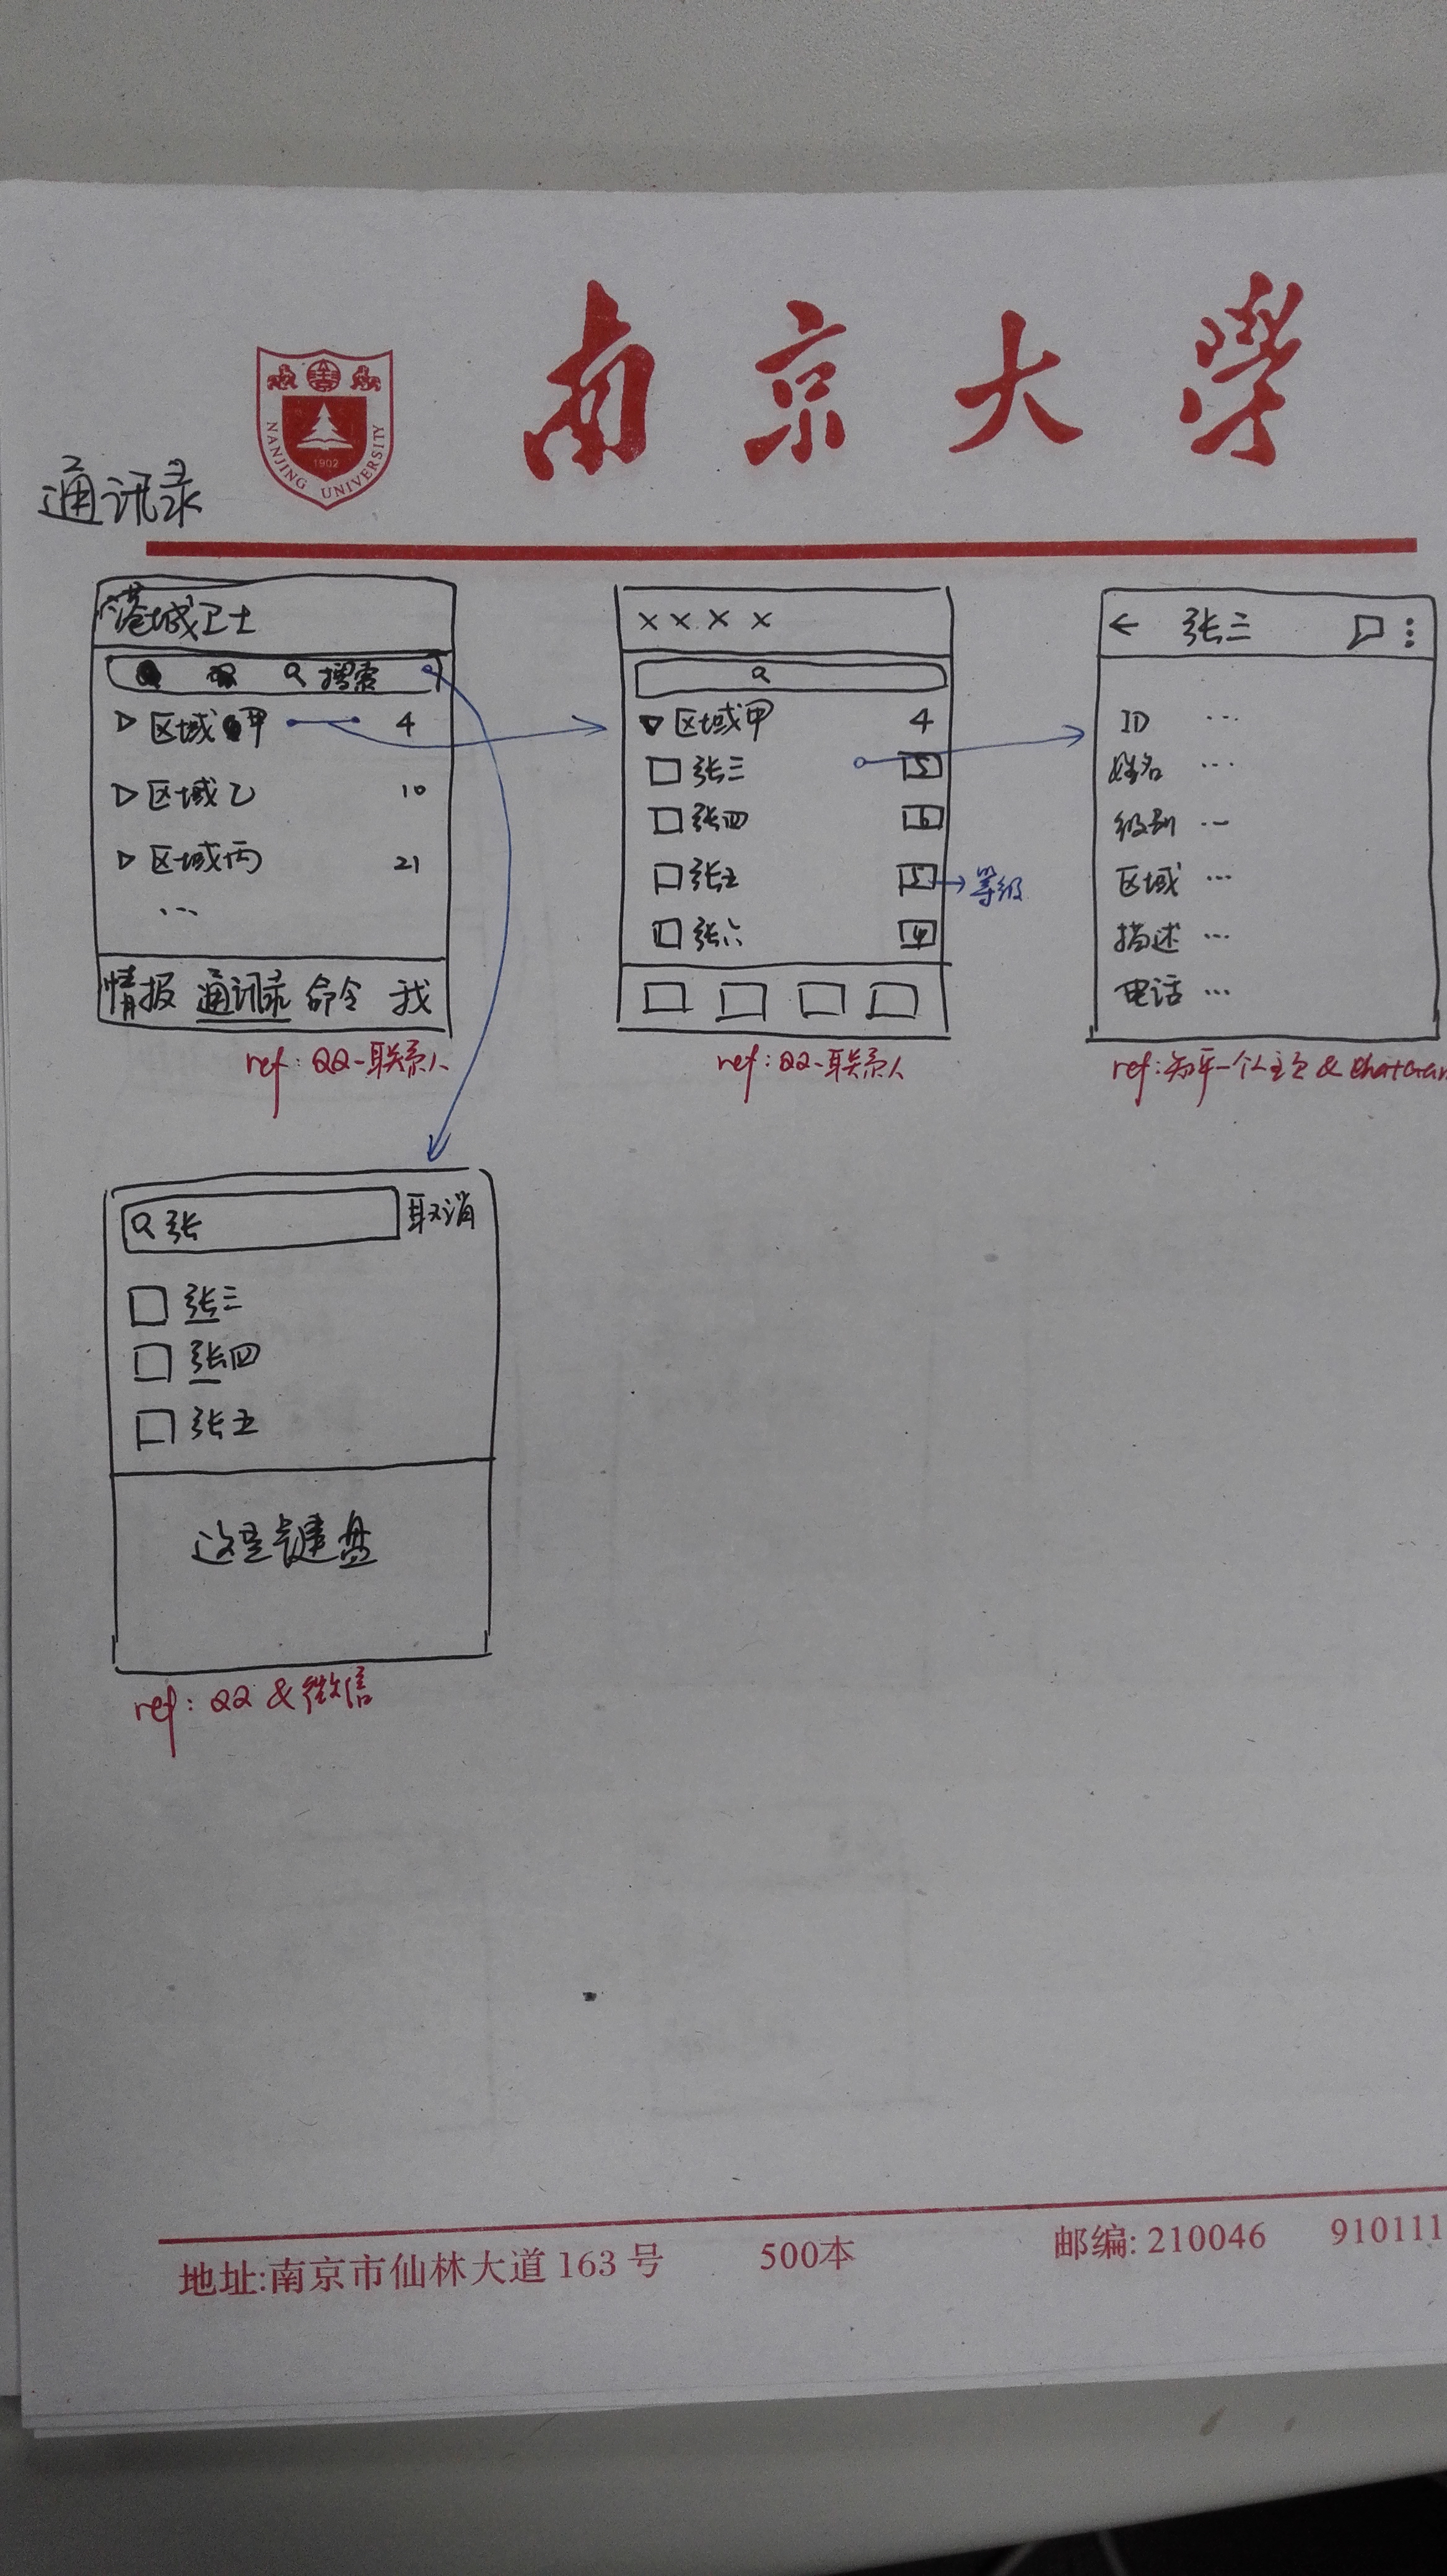 南京大學
NANJING UNIVERSITY
1902
通讯录
港城卫士
搜索
区域甲 4
区域乙 10
区域丙 21
...
情报 通讯录 命令 我
ref: QQ-联系人
××××
区域甲 4
张三 5
张四 6
张五 5 → 等级
张六 4
ref: QQ-联系人
← 张三
ID ...
姓名 ...
级别 ...
区域 ...
描述 ...
电话 ...
ref: 知乎-个人主页 &
张 取消
张三
张四
张五
这是键盘
ref: QQ & 微信
地址:南京市仙林大道 163 号 500本 邮编: 210046 910111